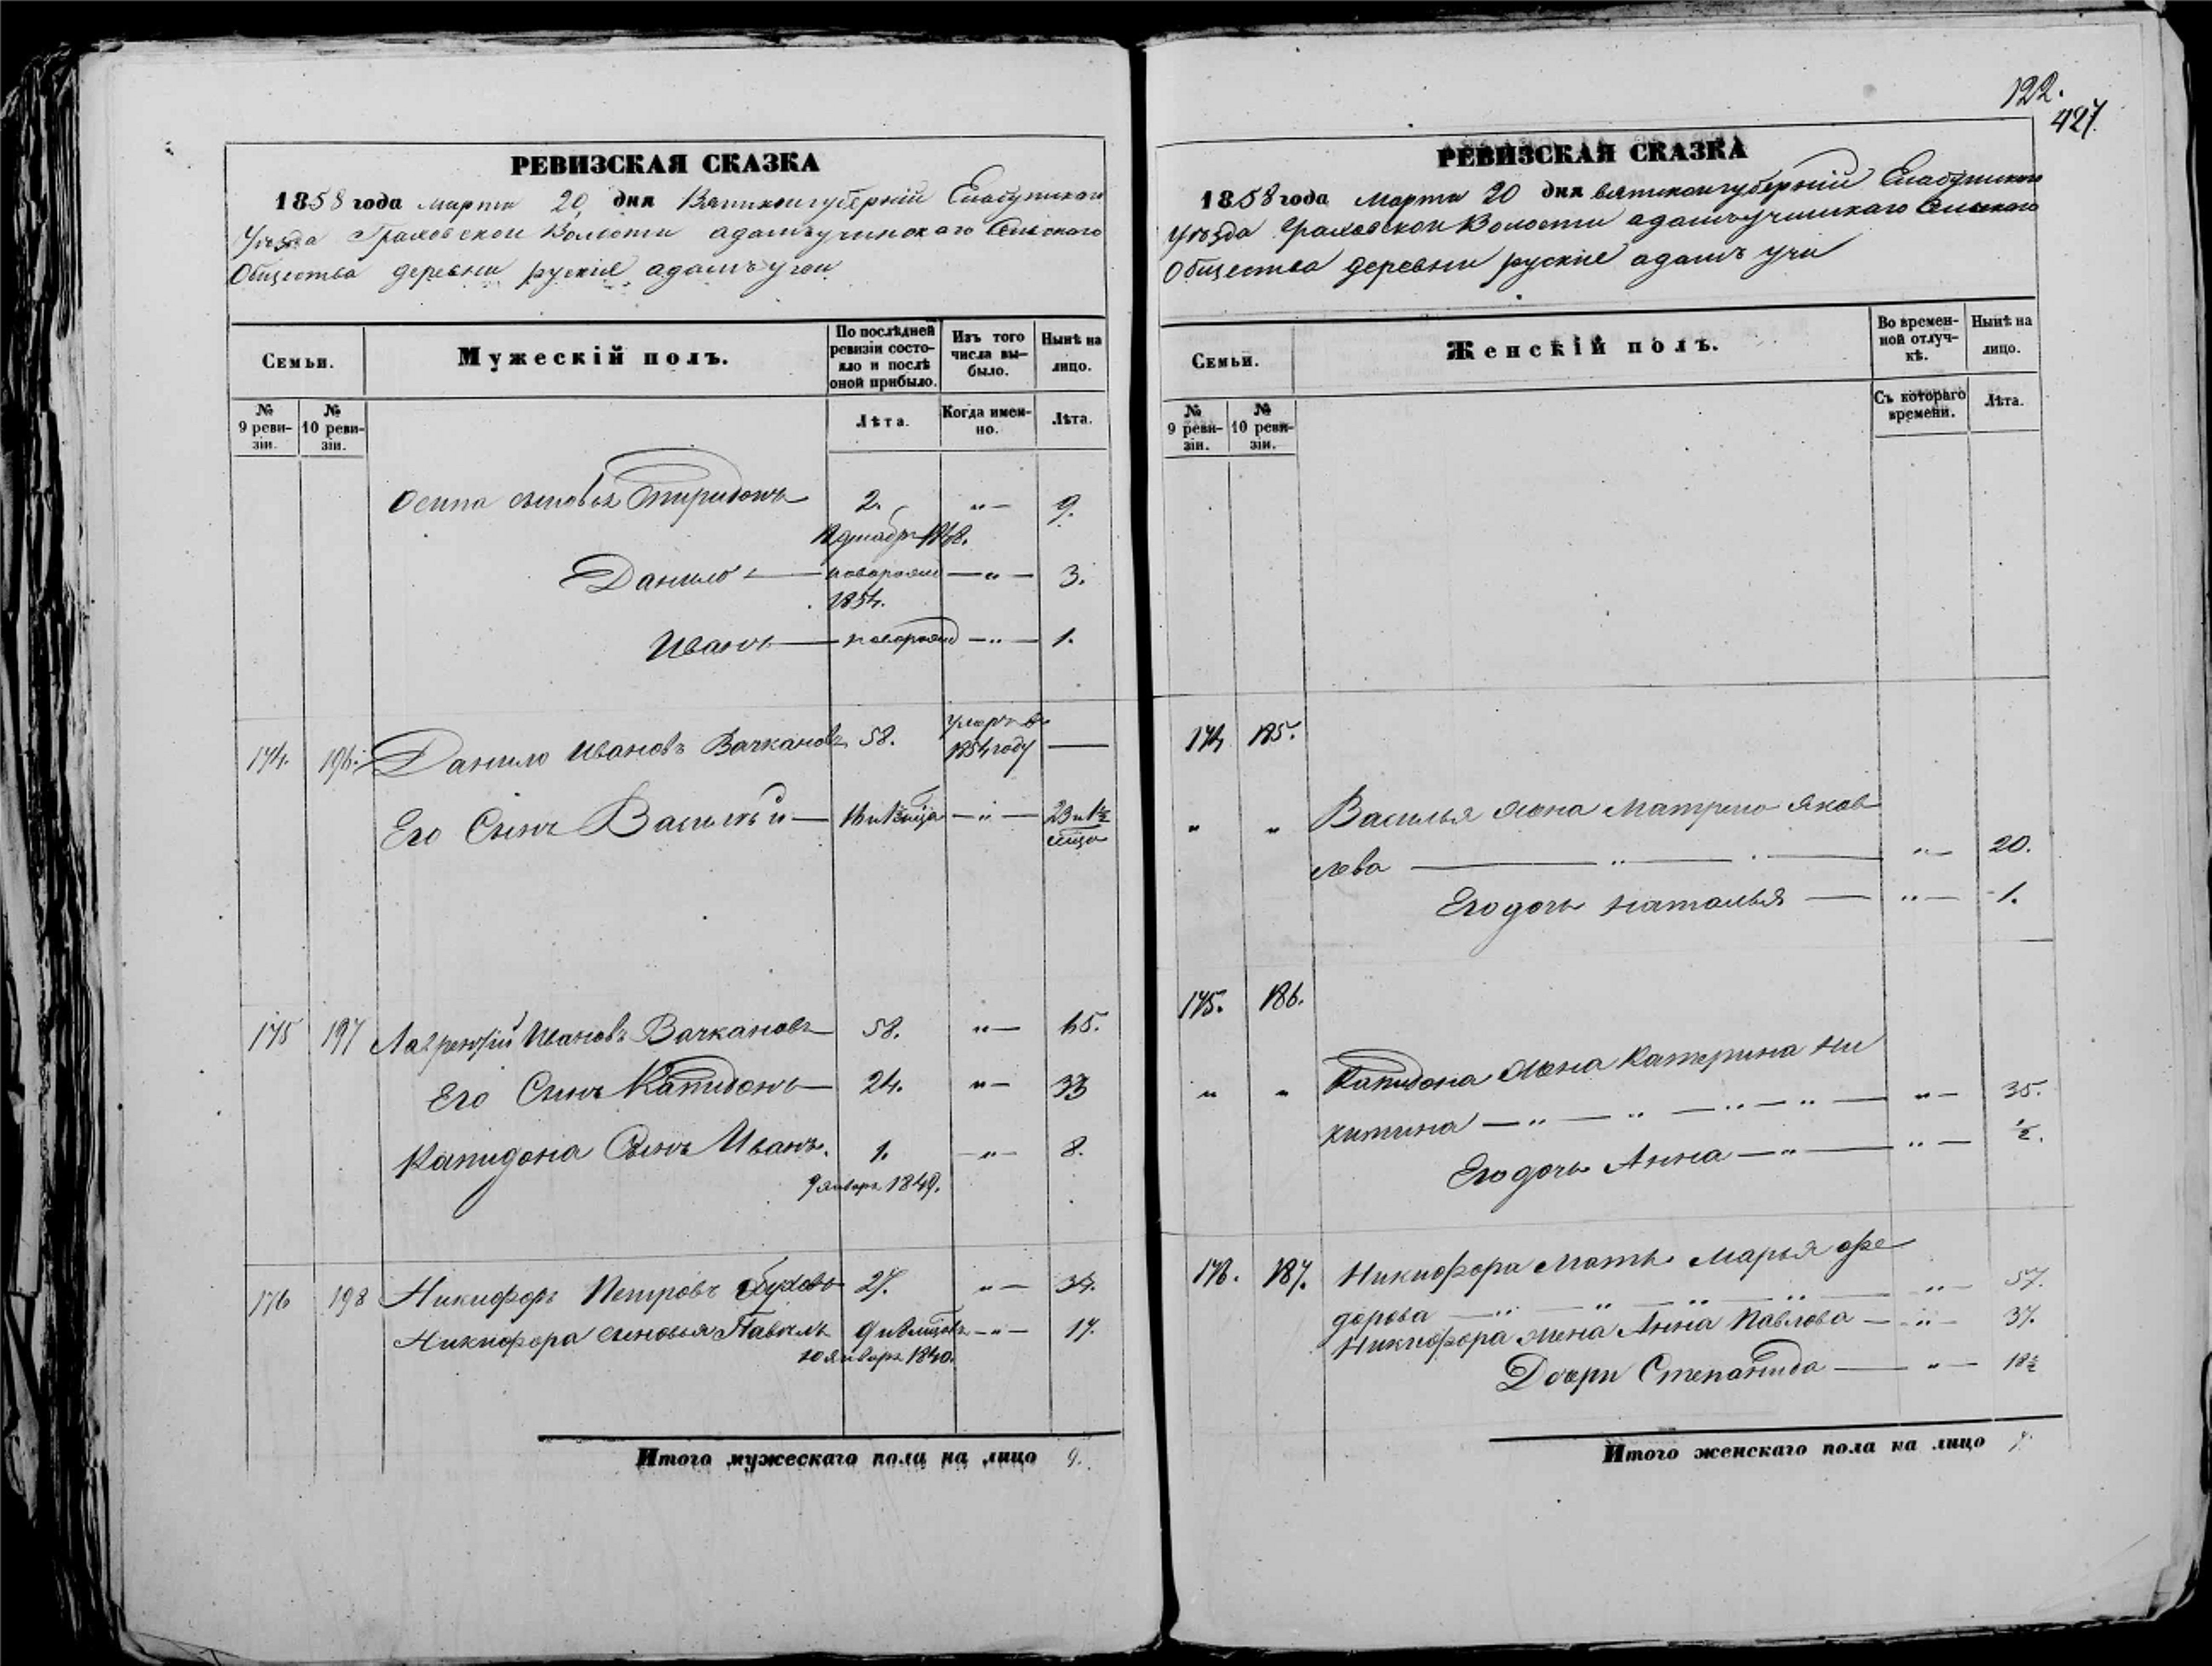 122.
427.
РЕВИЗСКАЯ СКАЗКА
1858 года марта 20 дня Вятской губерніи Елабужскаго
Уезда Граховской Волости адамъучинскаго Сельскаго
Общества деревни руские адамъ учи
Семьи.
Мужескій полъ.
По послѣдней ревизіи состояло и послѣ оной прибыло.
Изъ того числа выбыло.
Нынѣ на лицо.
№ 9 ревизіи.
№ 10 ревизіи.
Лѣта.
Когда именно.
Лѣта.
Осипа сыновья Спиридонъ 2. „ 9.
Данило новорожд „ 3.
1854.
Иванъ новорожд „ 1.
174. 196. Данило Ивановъ Вачкановъ 58. умеръ в 1854 году —
Его Сынъ Василий „
175 197 Лаврентий Ивановъ Вачкановъ 58. „
Его Сынъ Капидонъ 24. „ 33
Капидона Сынъ Иванъ. 1. „ 8.
9 январ 1849.
176 198 Никифоръ Петровъ 27. „
Никифора сыновья Павелъ „ 17.
10 январ 1840.
Итого мужескаго пола на лицо 9.
РЕВИЗСКАЯ СКАЗКА
1858 года марта 20 дня вятской губерніи Елабужскаго
уезда Граховской Волости адамъучинскаго Сельскаго
Общества деревни руские адамъ учи
Семьи.
Женскій полъ.
Во временной отлучкѣ.
Нынѣ на лицо.
№ 9 ревизіи.
№ 10 ревизіи.
Съ котораго времени.
Лѣта.
174 185.
„ „ Василья жена Матрена Яков
лева „ 20.
Его дочь Наталья „ 1.
175. 186.
„ „ Капидона жена Катерина Ни
китина „ 35.
Его дочь Анна „ ½.
176. 187. Никифора мать Марья Фе
дорова „ 57.
Никифора жена Анна Павлова „ 37.
Дочери Степанида „ 18½
Итого женскаго пола на лицо 7.